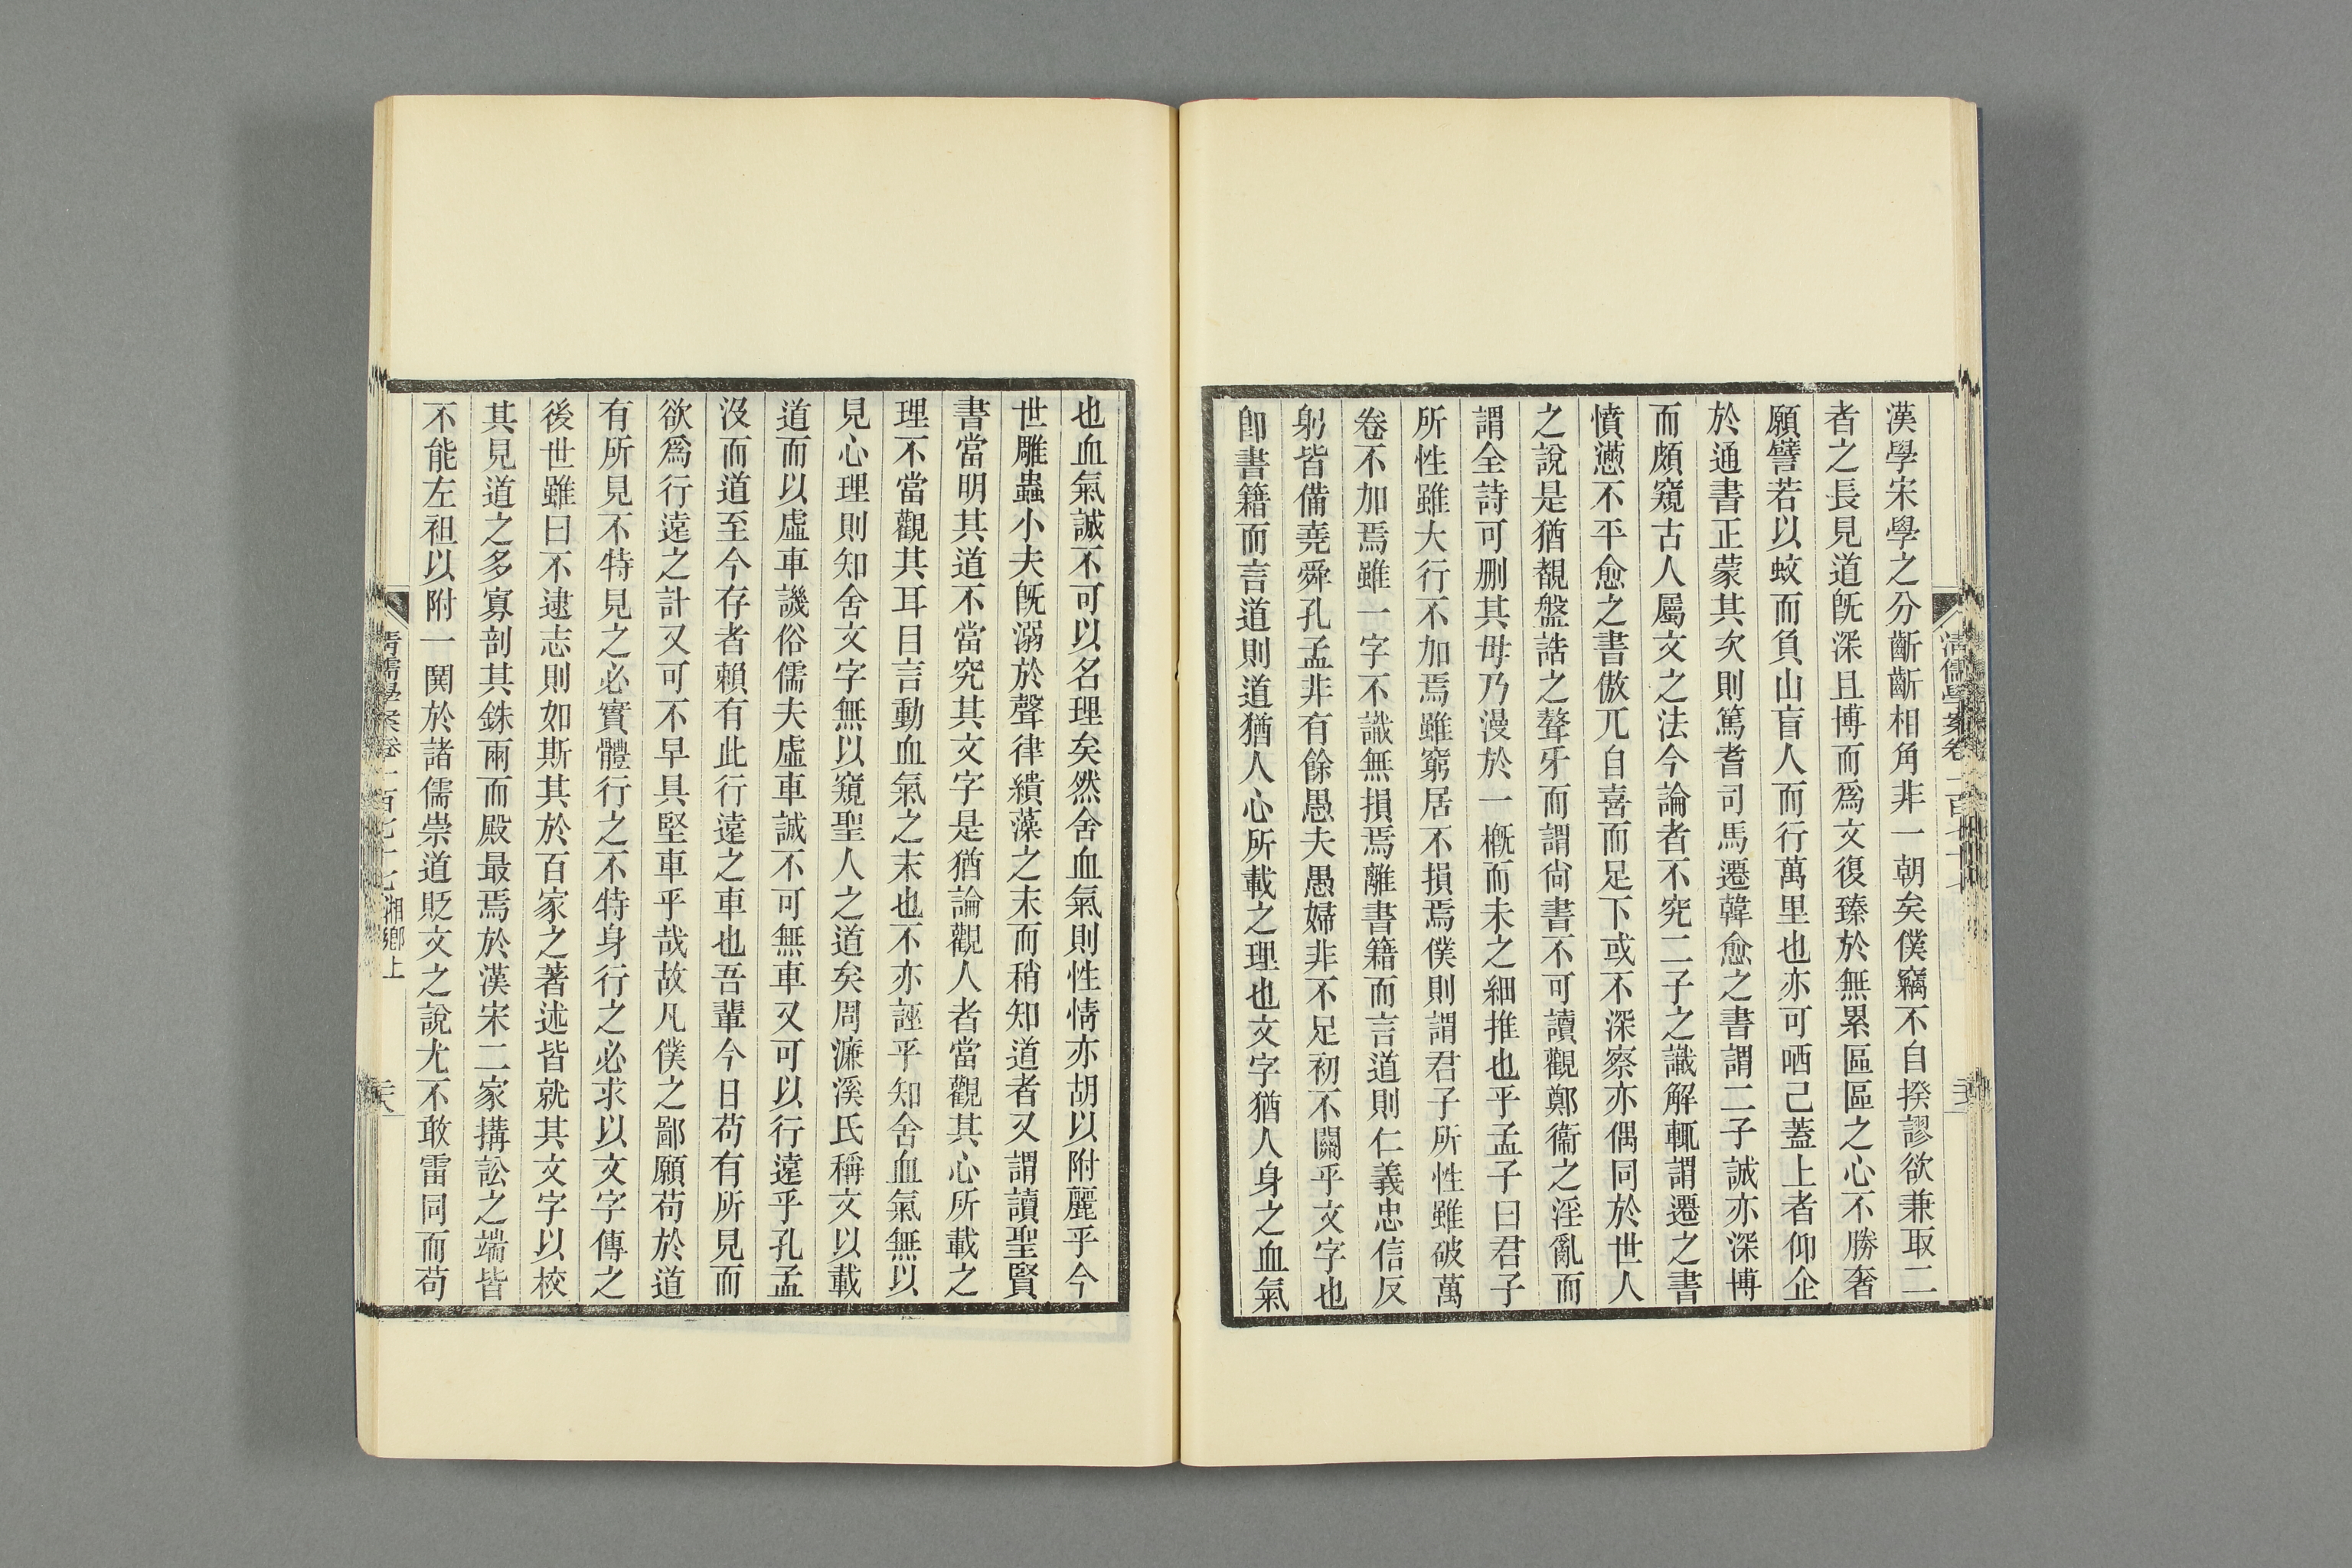 漢學宋學之分齗齗相角非一朝矣僕竊不自揆謬欲兼取二
者之長見道旣深且博而爲文復臻於無累區區之心不勝奢
願譬若以蚊而負山盲人而行萬里也亦可哂己蓋上者仰企
於通書正蒙其次則篤耆司馬遷韓愈之書謂二子誠亦深博
而頗窺古人屬文之法今論者不究二子之識解輒謂遷之書
憤懣不平愈之書傲兀自喜而足下或不深察亦偶同於世人
之說是猶覩盤誥之聱牙而謂尙書不可讀觀鄭衞之淫亂而
謂全詩可刪其毋乃漫於一槪而未之細推也乎孟子曰君子
所性雖大行不加焉雖窮居不損焉僕則謂君子所性雖破萬
卷不加焉雖一字不識無損焉離書籍而言道則仁義忠信反
躬皆備堯舜孔孟非有餘愚夫愚婦非不足初不關乎文字也
卽書籍而言道則道猶人心所載之理也文字猶人身之血氣
也血氣誠不可以名理矣然舍血氣則性情亦胡以附麗乎今
世雕蟲小夫旣溺於聲律繢藻之末而稍知道者又謂讀聖賢
書當明其道不當究其文字是猶論觀人者當觀其心所載之
理不當觀其耳目言動血氣之末也不亦誣乎知舍血氣無以
見心理則知舍文字無以窺聖人之道矣周濂溪氏稱文以載
道而以虛車譏俗儒夫虛車誠不可無車又可以行遠乎孔孟
沒而道至今存者賴有此行遠之車也吾輩今日苟有所見而
欲爲行遠之計又可不早具堅車乎哉故凡僕之鄙願苟於道
有所見不特見之必實體行之不特身行之必求以文字傳之
後世雖曰不逮志則如斯其於百家之著述皆就其文字以校
其見道之多寡剖其銖兩而殿最焉於漢宋二家搆訟之端皆
不能左袒以附一鬨於諸儒崇道貶文之說尤不敢雷同而苟
清儒學案卷一百七十七湘鄉上